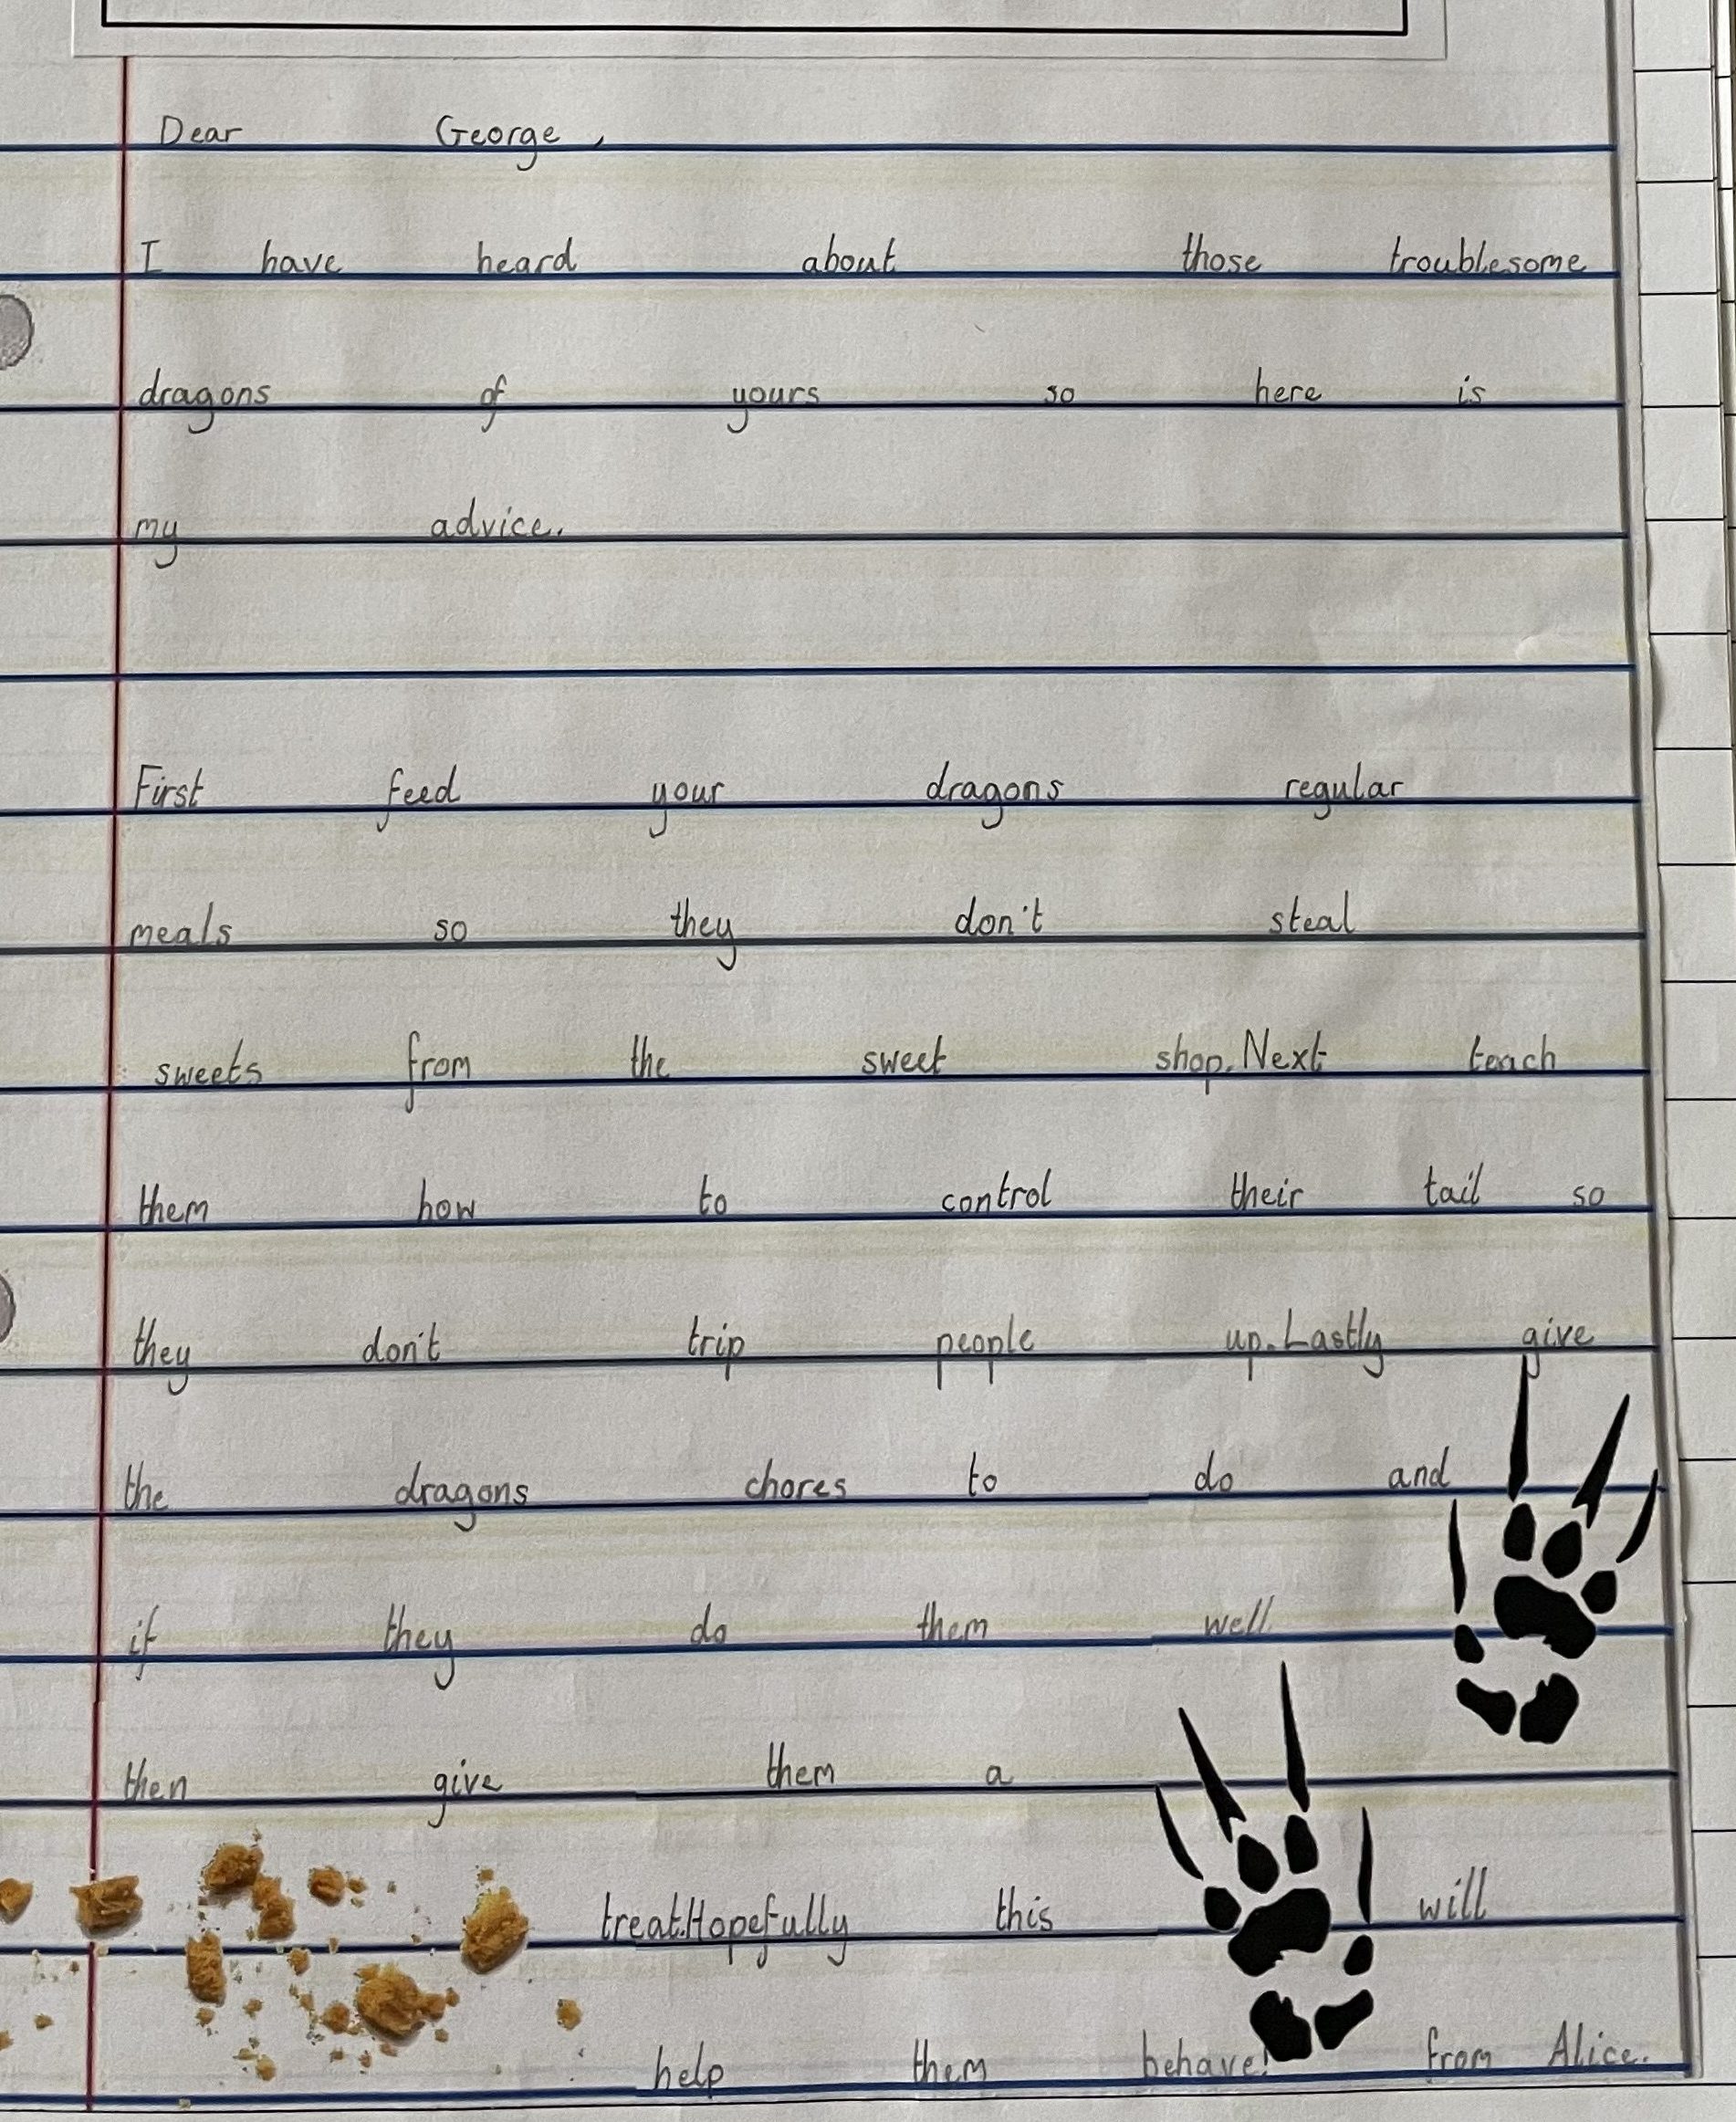 Dear George,
I have heard about those troublesome
dragons of yours so here is
my advice.
First feed your dragons regular
meals so they don't steal
sweets from the sweet shop. Next teach
them how to control their tail so
they don't trip people up. Lastly give
the dragons chores to do and
if they do them well
then give them a
treat.Hopefully this will
help them behave! from Alice.